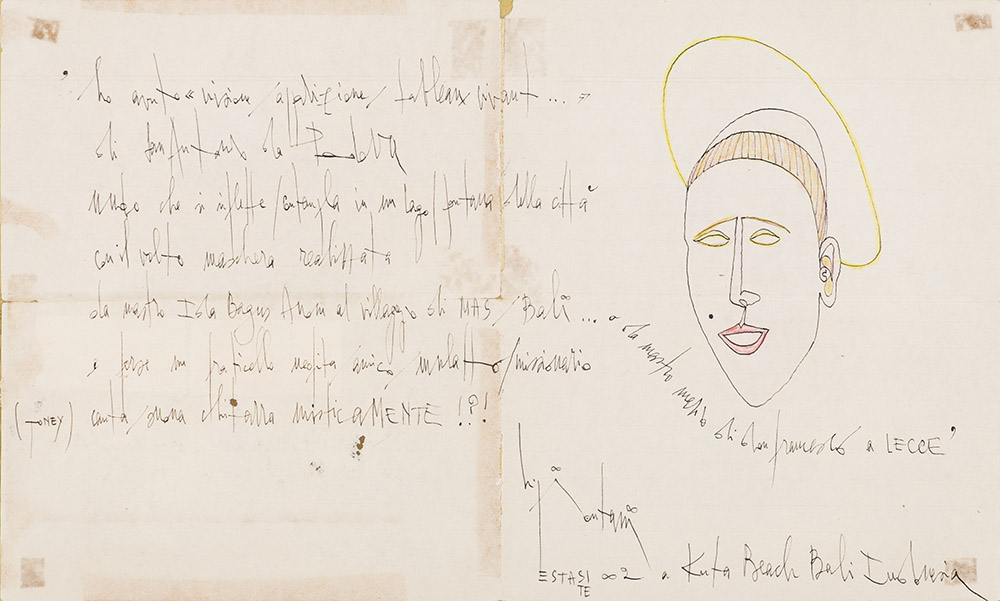 , ho avuto « visione / apparizione / tableaux vivant ... »
di Sant'Antonio da PadoVA
che si riflette / in un lago / fontana della città
con il volto maschera realizzata
da mastro Ida Bagus Anom al villaggio di MAS / Bali ...
e forse un fraticello amico mulatto / missionario
(TONEY) canta / suona chitarra misticaMENTE !?!
o da mastro di San Francesco a LECCE '
Luigi Ontani
ESTASI
TE
∞2 a Kuta Beach Bali Indonesia